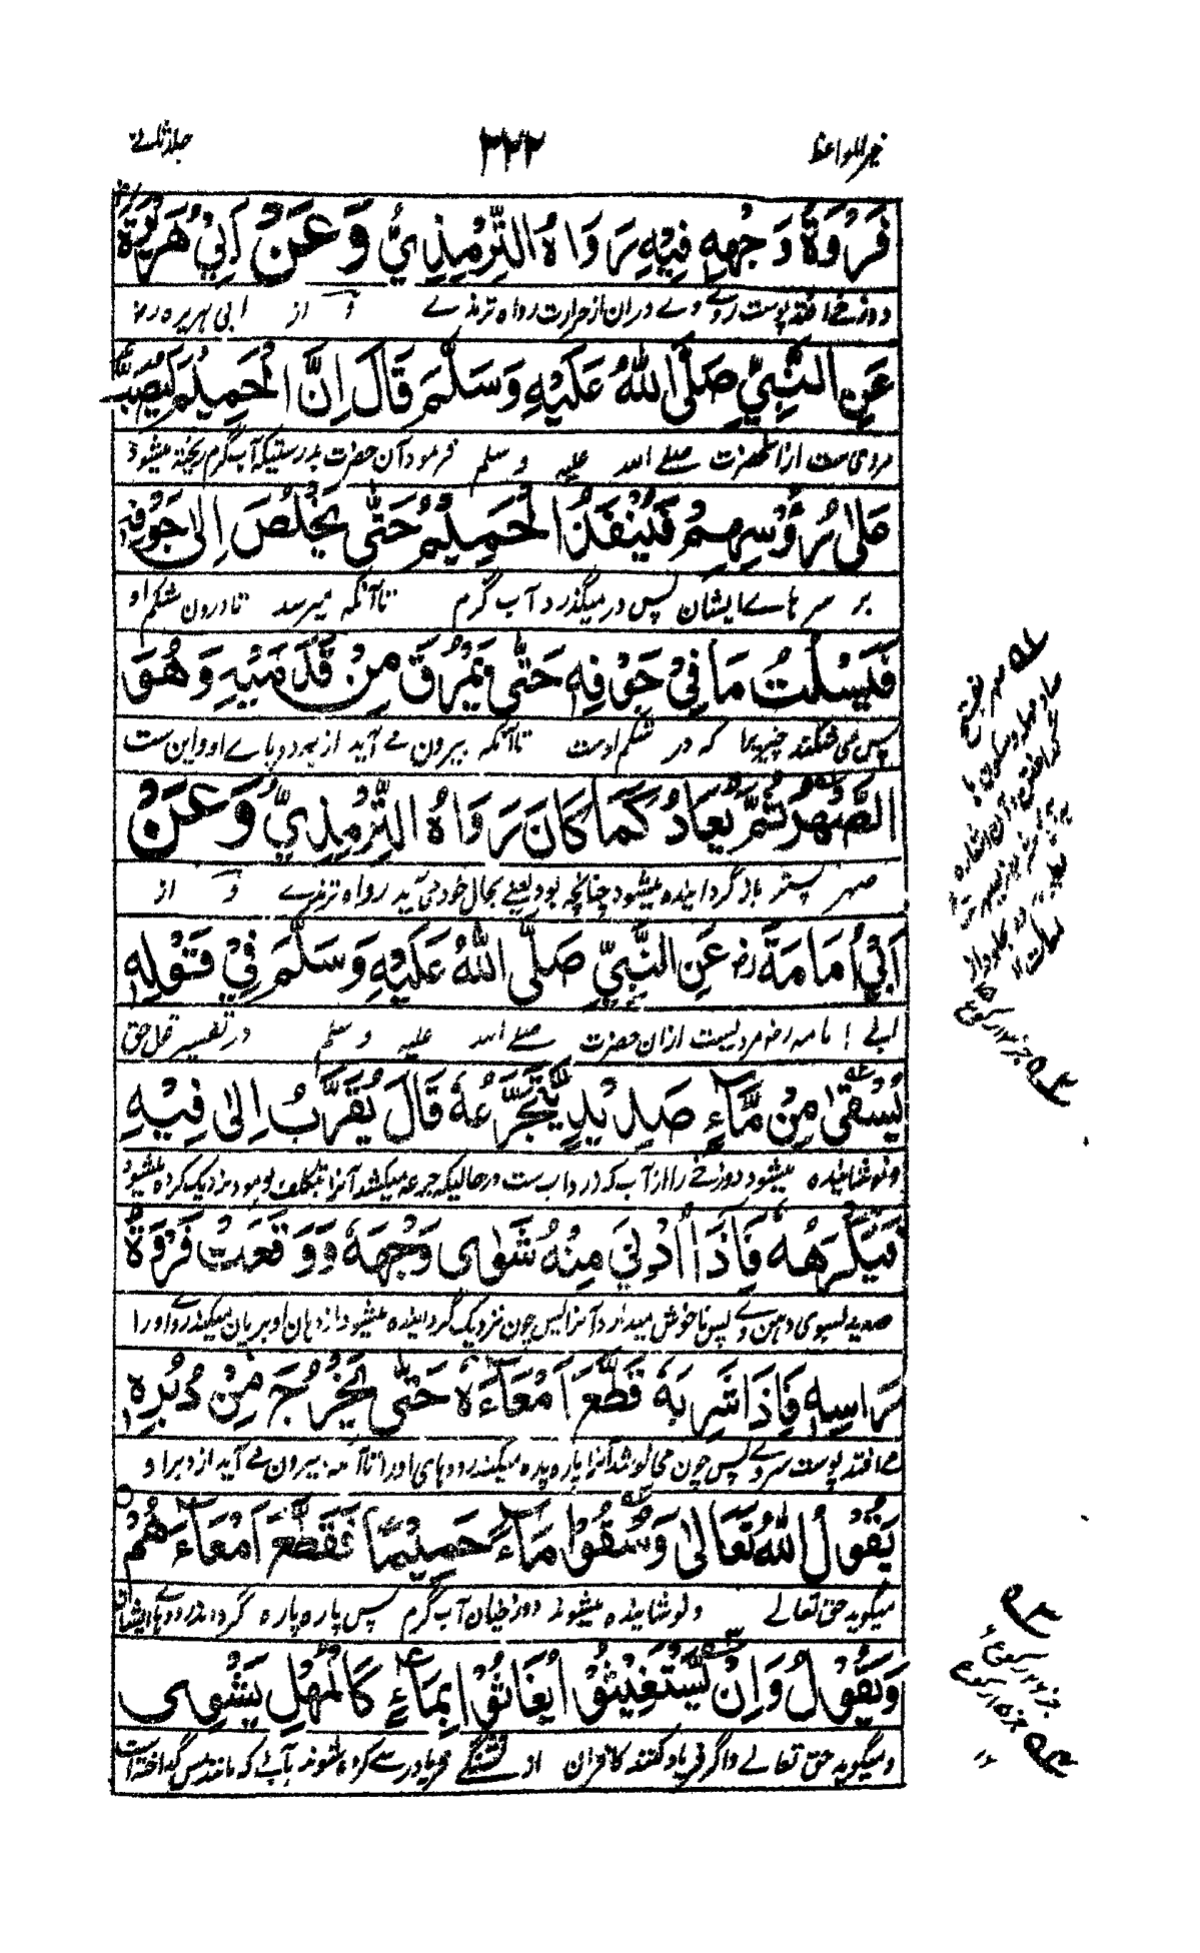 خیر المواعظ ۳۲۲ جلد ثالث
فَرْوَةُ وَجْهِهِ فِيْهِ رَوَاهُ التِّرْمِذِيُّ وَعَنْ اَبِيْ هُرَيْرَةَ
دوزخ پوست روے وے دران از حرارت رواه ترمذے و از ابی هریره رض
عَنِ النَّبِيِّ صَلَّى اللهُ عَلَيْهِ وَسَلَّمَ قَالَ اِنَّ الْحَمِيْمَ لَيُصَبُّ
مروی ست از انحضرت صلے الله علیه و سلم فرمود آن حضرت بدرستیکه آب گرم ریخته میشود
عَلٰى رُؤُسِهِمْ فَيَنْفُذُ الْحَمِيْمُ حَتّٰى يَخْلُصَ اِلٰى جَوْفِهِ
بر سر هاے ایشان پس در میگذرد آب گرم تا آنکه میرسد تا درون شکم او
فَيَسْلُتُ مَا فِيْ جَوْفِهِ حَتّٰى يَمْرُقَ مِنْ قَدَمَيْهِ وَهُوَ
پس می چیزیرا که در شکم اوست تا آنکه بیرون مے آید از هر دو پاے او و این ست
الصَّهْرُ ثُمَّ يُعَادُ كَمَا كَانَ رَوَاهُ التِّرْمِذِيُّ وَعَنْ
صهر پستر باز گردانیده میشود چنانچه بود یعنے بحال خود می آید رواه ترمذے و از
اَبِيْ اُمَامَةَ رض عَنِ النَّبِيِّ صَلَّى اللهُ عَلَيْهِ وَسَلَّمَ فِيْ قَوْلِهِ
ابے امامه رض مرویست ازان حضرت صلے الله علیه و سلم در تفسیر قول حق
يُسْقٰى مِنْ مَّآءٍ صَدِيْدٍ يَّتَجَرَّعُهُ قَالَ يُقَرَّبُ اِلٰى فِيْهِ
و نوشانیده میشود دوزخے را از آب که زرداب ست در حالیکه جرعه میکشد آنرا بتکلف فرمود نزدیک کرده میشود
فَيَكْرَهُهُ فَاِذَا اُدْنِيَ مِنْهُ شَوٰى وَجْهَهُ وَوَقَعَتْ فَرْوَةُ
صدید بسوی دهن وے پس ناخوش میدارد آنرا پس چون نزدیک گردانیده میشود از دهان او بریان میکند روے او را
رَاسِهِ فَاِذَا شَرِبَهُ قَطَّعَ اَمْعَآءَهُ حَتّٰى يَخْرُجَ مِنْ دُبُرِهِ
پوست سر وے پس چون می نوشد آنرا پاره پاره میکند رودهای او را تا آنکه بیرون مے آید از دبر او
يَقُوْلُ اللهُ تَعَالٰى وَسُقُوْا مَآءً حَمِيْمًا فَقَطَّعَ اَمْعَآءَهُمْ
میگوید حق تعالے و نوشانیده میشوند دوزخیان آب گرم پس پاره پاره گرداند رودهاے ایشان
وَيَقُوْلُ وَاِنْ يَّسْتَغِيْثُوْا يُغَاثُوْا بِمَآءٍ كَالْمُهْلِ يَشْوِى
و میگوید حق تعالے و اگر فریاد کنند کافران از تشنگے فریادرسے کرده شوند بآبے که مانند مس گداخته است